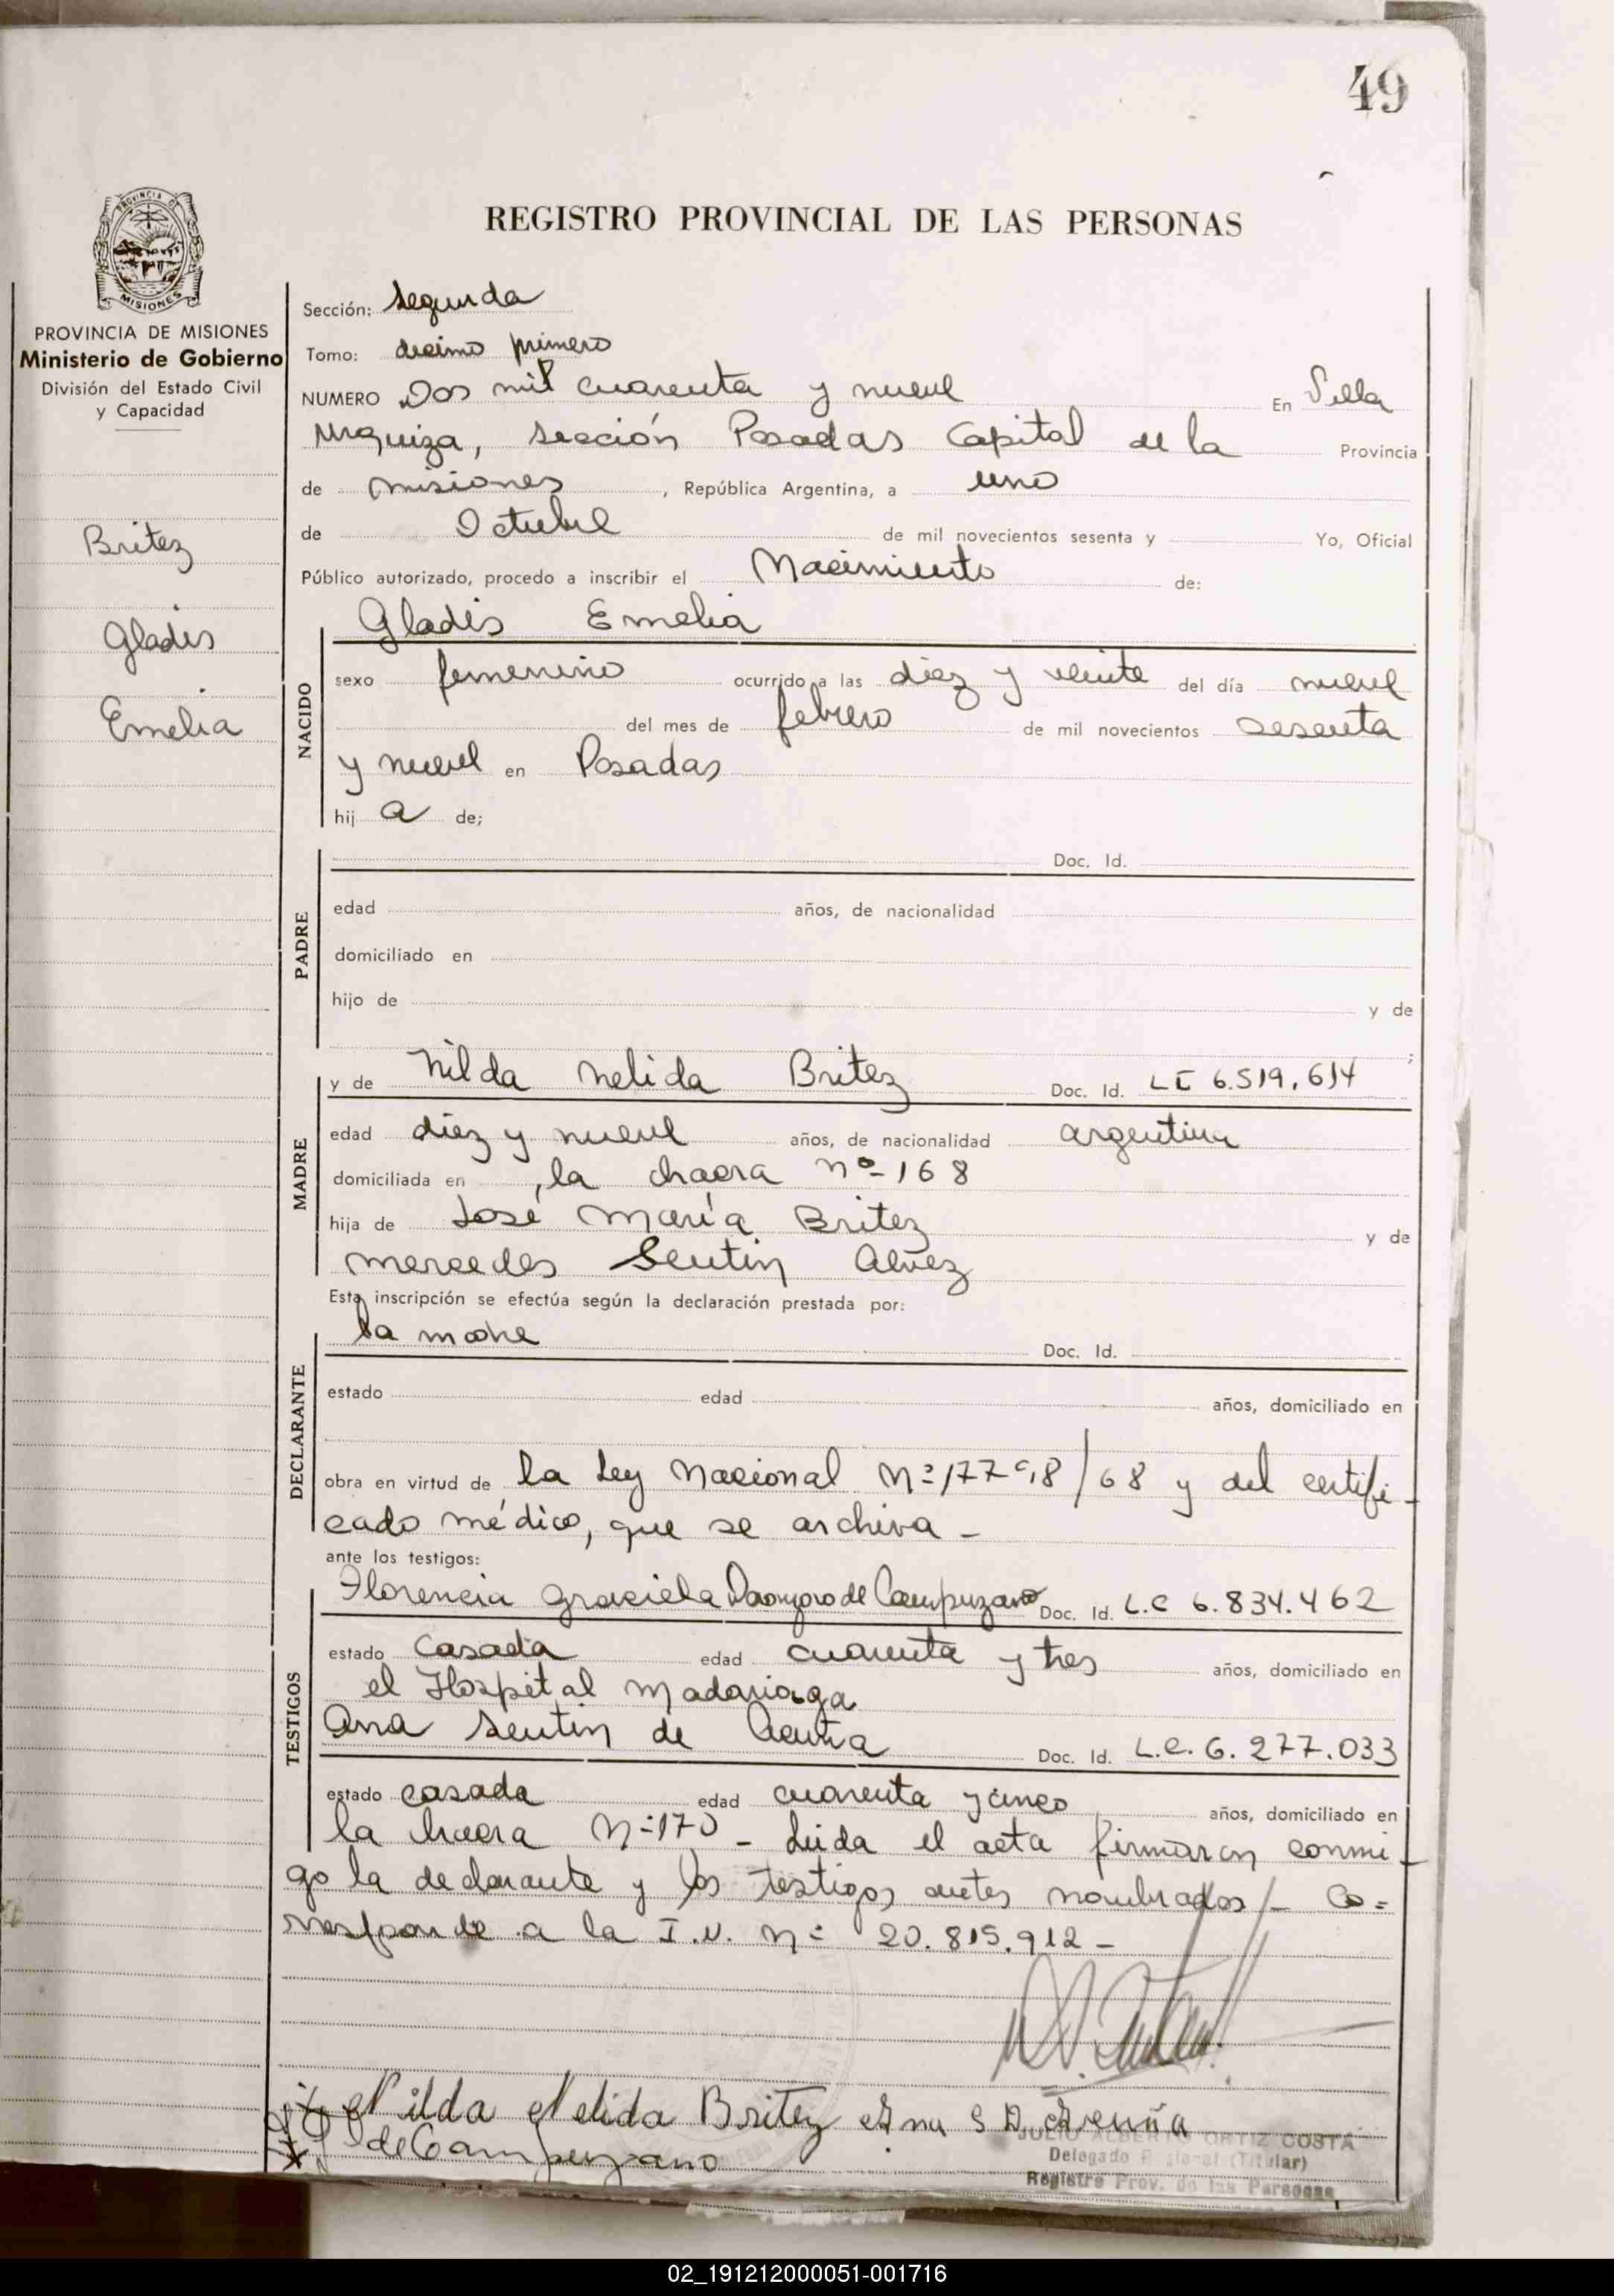 49
PROVINCIA DE
MISIONES
REGISTRO PROVINCIAL DE LAS PERSONAS
PROVINCIA DE MISIONES
Ministerio de Gobierno
División del Estado Civil
y Capacidad
Britez
Gladis
Emelia
Sección: Segunda
Tomo: decimo primero
NUMERO Dos mil cuarenta y nueve En Villa
Urquiza, sección Posadas Capital de la Provincia
de misiones, República Argentina, a uno
de Octubre de mil novecientos sesenta y Yo, Oficial
Público autorizado, procedo a inscribir el Nacimiento de:
Gladis Emelia
NACIDO
sexo femenino ocurrido a las diez y veinte del día nueve
del mes de febrero de mil novecientos sesenta
y nueve en Posadas
hij a de;
PADRE
Doc. Id.
edad años, de nacionalidad
domiciliado en
hijo de y de
;
MADRE
y de Nilda Nelida Britez Doc. Id. LC 6.519.614
edad diez y nueve años, de nacionalidad argentina
domiciliada en la chacra nº 168
hija de José María Britez y de
mercedes Sentin Alvez
Esta inscripción se efectúa según la declaración prestada por:
DECLARANTE
la madre Doc. Id.
estado edad años, domiciliado en
obra en virtud de la Ley Nacional Nº 17798/68 y del certifi-
cado médico, que se archiva -
ante los testigos:
TESTIGOS
Florencia Graciela de Campuzano Doc. Id. L.C 6.834.462
estado Casada edad cuarenta y tres años, domiciliado en
el Hospital Madariaga
Ana Sentin de Acuña Doc. Id. L.C. 6.277.033
estado casada edad cuarenta y cinco años, domiciliado en
la chacra Nº 170 - Leida el acta firmaron conmi-
go la declarante y los testigos antes nombrados/- Co=
rresponde a la I.N. nº 20.815.912 -
Nilda Nelida Britez Ana S D. Acuña
de Campuzano
JULIO ALBERTO ORTIZ COSTA
Delegado (Titular)
Registro Prov. de las Personas
02_191212000051-001716